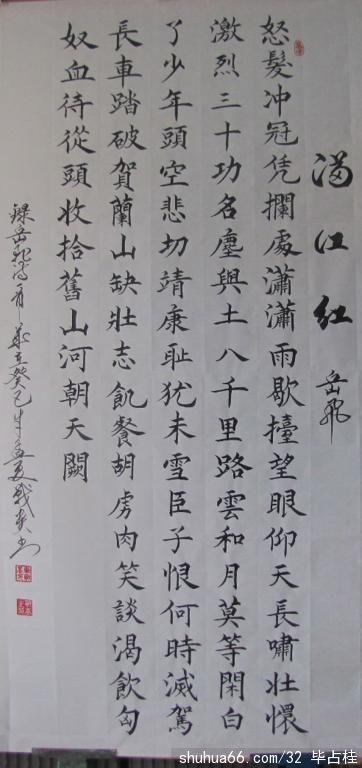 满江红
岳飛
怒髮冲冠凭攔處瀟瀟雨歇擡望眼仰天長嘯壯懷
激烈三十功名塵與土八千里路雲和月莫等閑白
了少年頭空悲切靖康耻犹未雪臣子恨何時滅駕
長車踏破賀蘭山缺壯志飢餐胡虏肉笑談渴飲匈
奴血待從頭收拾舊山河朝天闕
錄岳飛滿江
癸巳年孟夏
shuhua66.com/32 毕占桂